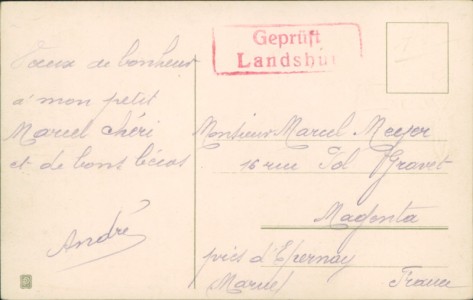 Voeux de bonheur
a mon petit
Marcel chéri
et de bons bécos
André
Geprüft
Landshut
Monsieur Marcel Meyer
16 rue Gravet
Magenta
près d'Epernay
Marne France